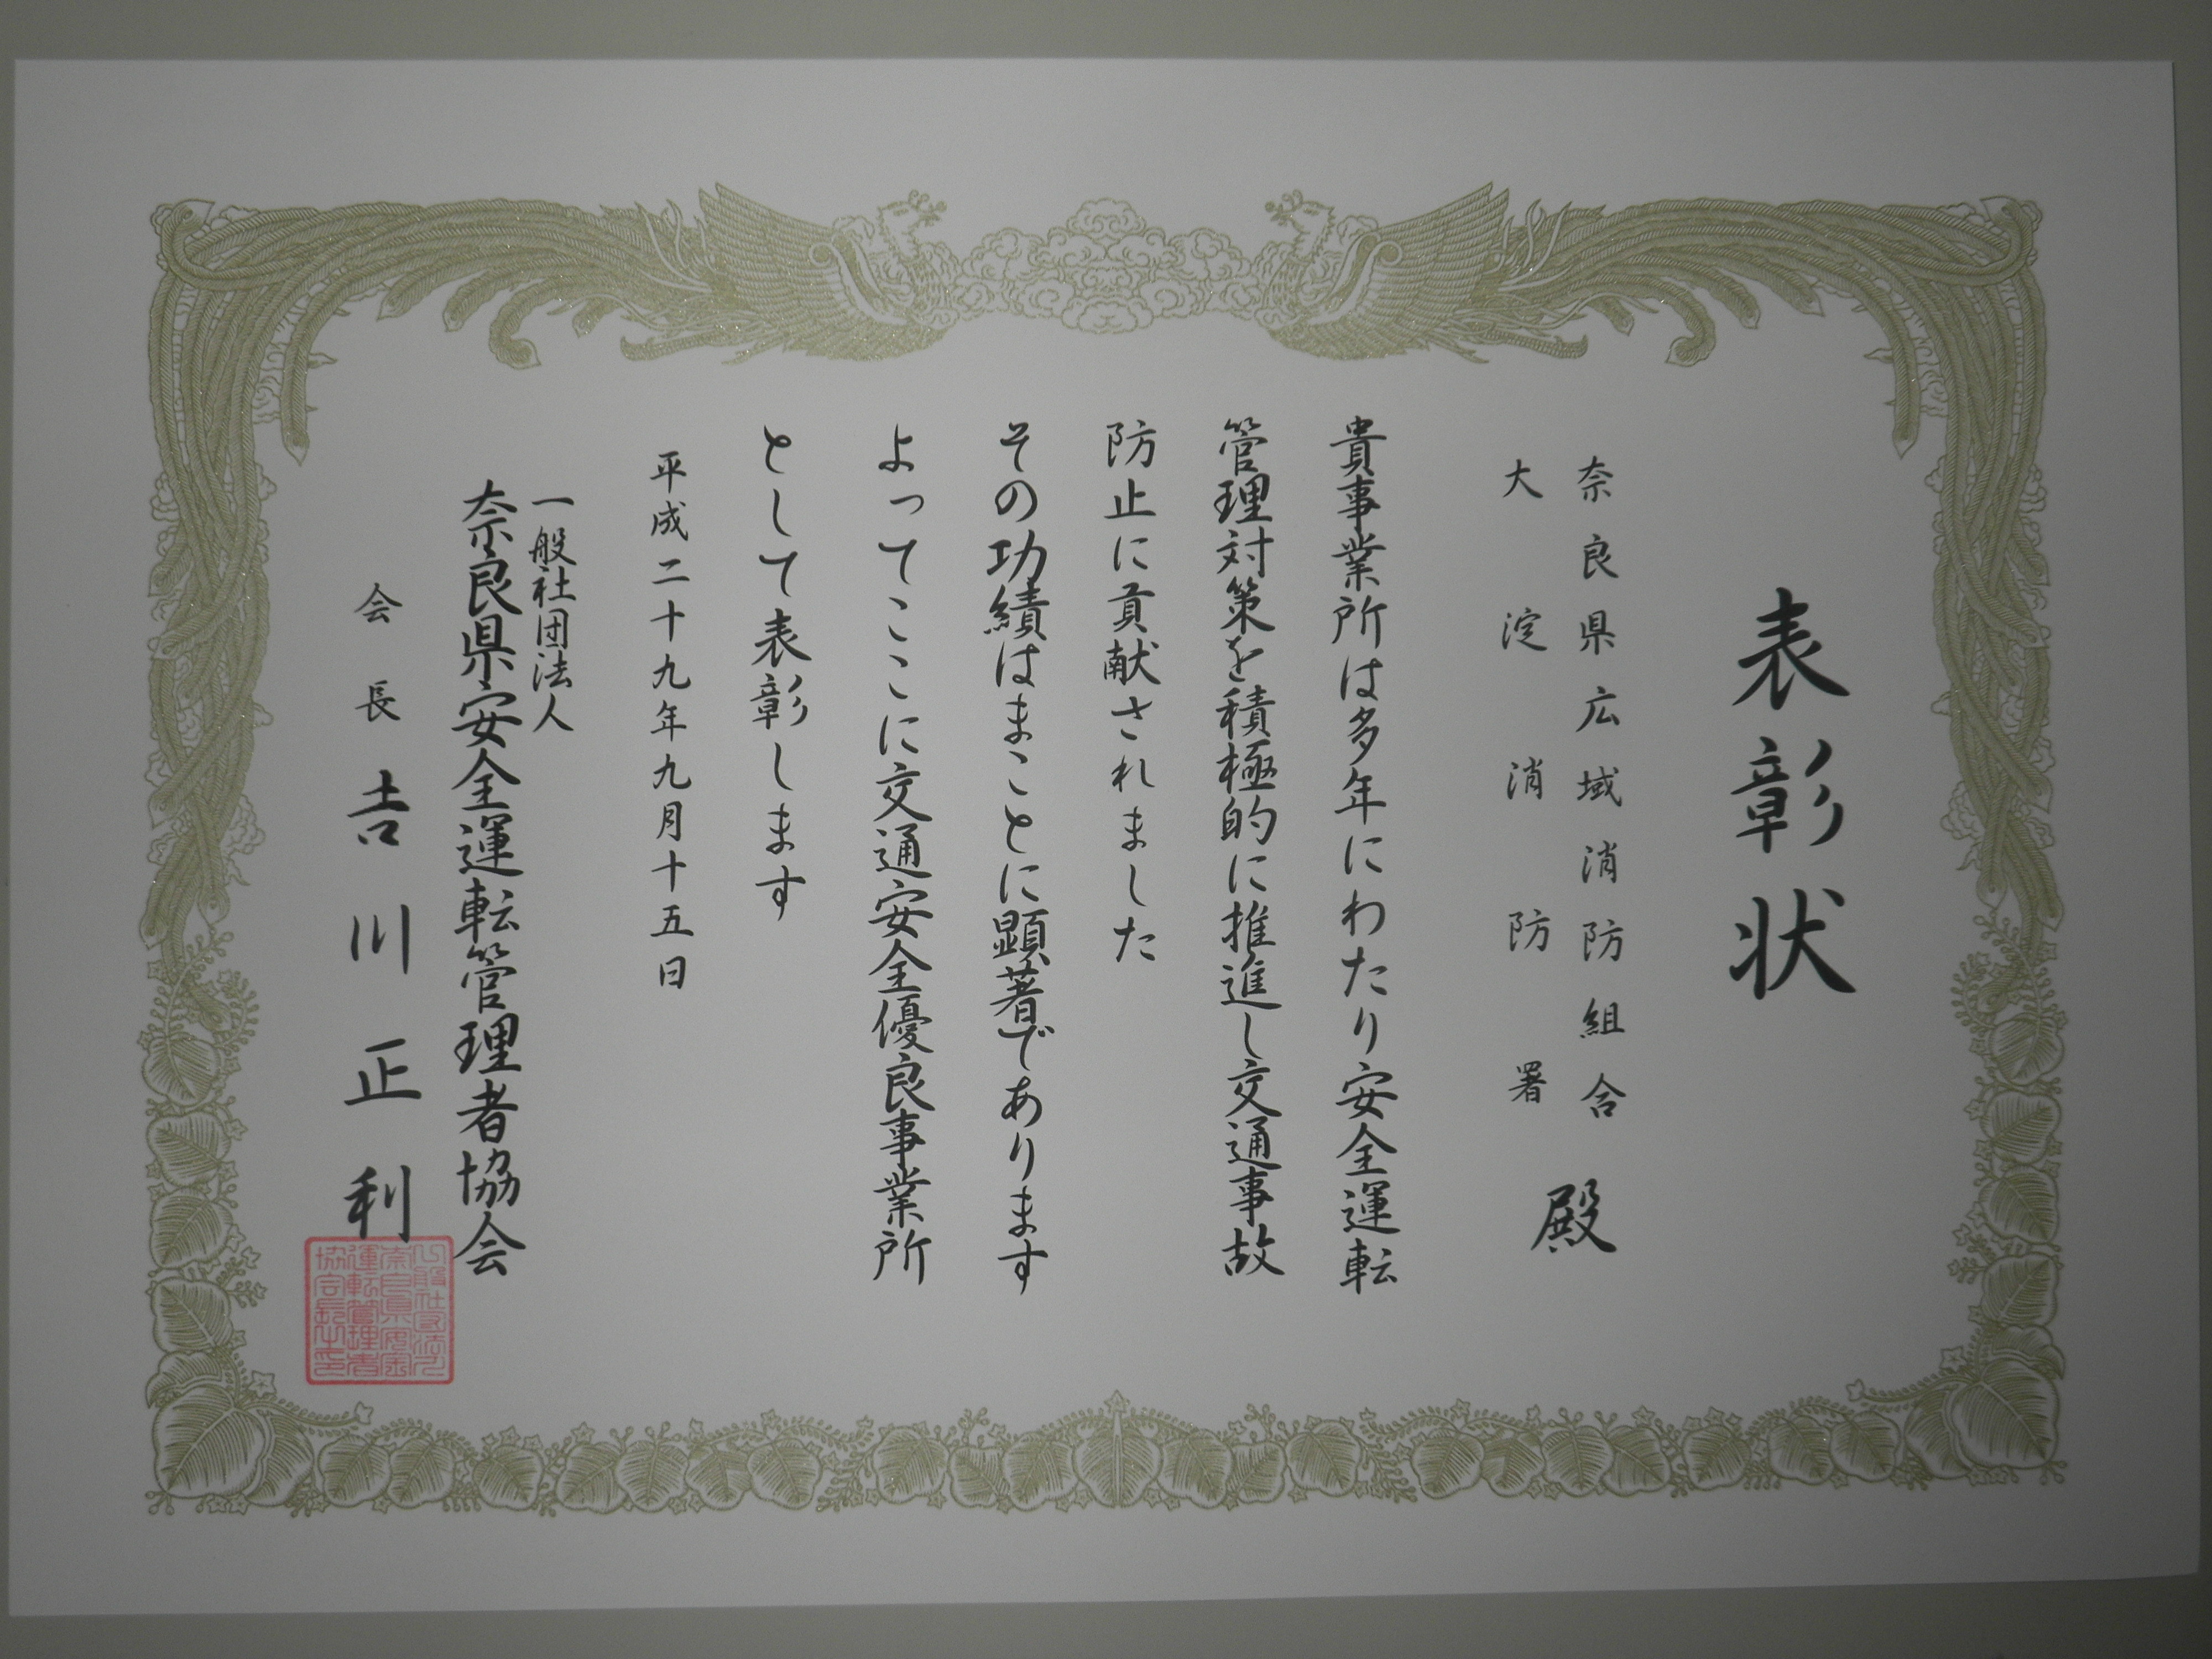 表彰状
奈良県広域消防組合
大淀消防署
殿
貴事業所は多年にわたり安全運転
管理対策を積極的に推進し交通事故
防止に貢献されました
その功績はまことに顕著であります
よってここに交通安全優良事業所
として表彰します
平成二十九年九月十五日
一般社団法人
奈良県安全運転管理者協会
会長 吉川正利